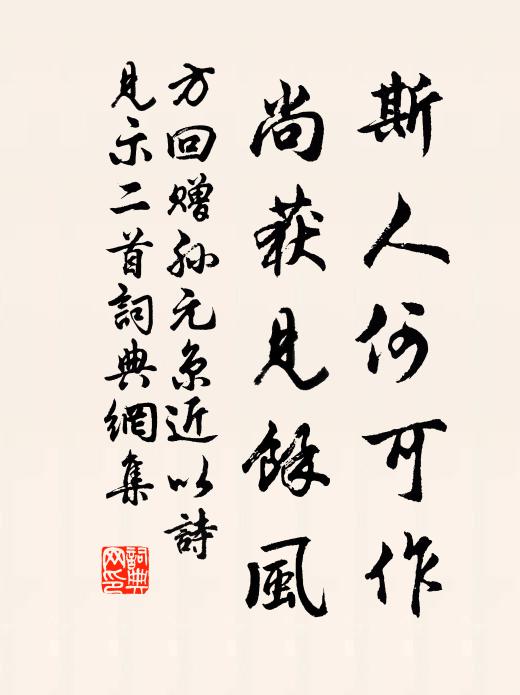 斯人何可作
尚获見餘風
方回贈孙元京近以詩
見示二首詞典網集
詞典网印